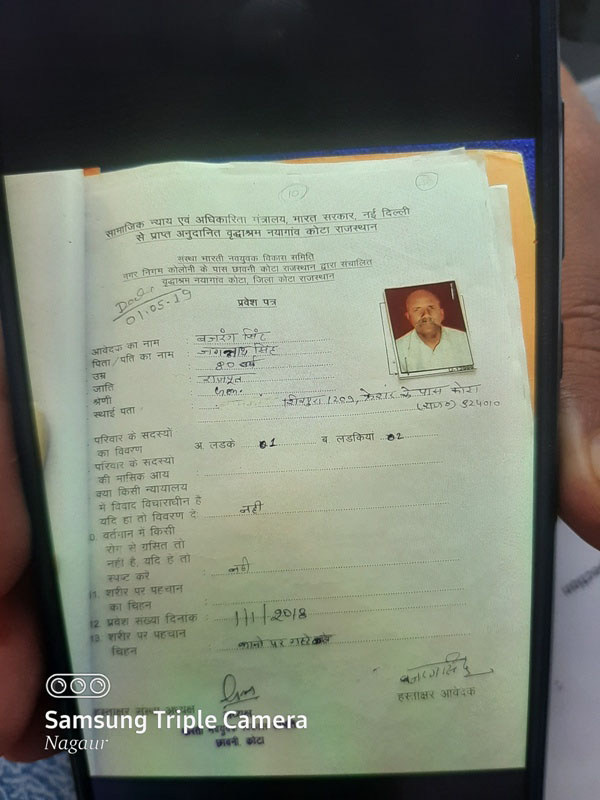 सामाजिक न्याय एवं अधिकारिता मंत्रालय, भारत सरकार, नई दिल्ली
से प्राप्त अनुदानित वृद्धाश्रम नयागांव कोटा राजस्थान
संस्था भारती नवयुवक विकास समिति
नगर निगम कोलोनी के पास छावनी कोटा राजस्थान द्वारा संचालित
वृद्धाश्रम नयागांव कोटा, जिला कोटा राजस्थान
01.05.19
प्रवेश पत्र
आवेदक का नाम : बजरंग सिंह
पिता / पति का नाम : जगन्नाथ सिंह
उम्र : 80 वर्ष
जाति : राजपूत
श्रेणी
स्थाई पता : के पास कोटा
(राज०) 324010
परिवार के सदस्यों
का विवरण : अ. लडके 01 ब. लडकिया 02
परिवार के सदस्यों
की मासिक आय :
क्या किसी न्यायालय
में विवाद विचाराधीन है
यदि हा तो विवरण दे : नही
0. वर्तमान में किसी
रोग से ग्रसित तो
नही है, यदि है तो
स्पष्ट करे : नही
11. शरीर पर पहचान
का चिहन :
12. प्रवेश संख्या दिनांक : 1/1/2018
13. शरीर पर पहचान
चिहन : कानो पर
हस्ताक्षर आवेदक
हस्ताक्षर संस्था अध्यक्ष
छावनी, कोटा
Samsung Triple Camera
Nagaur